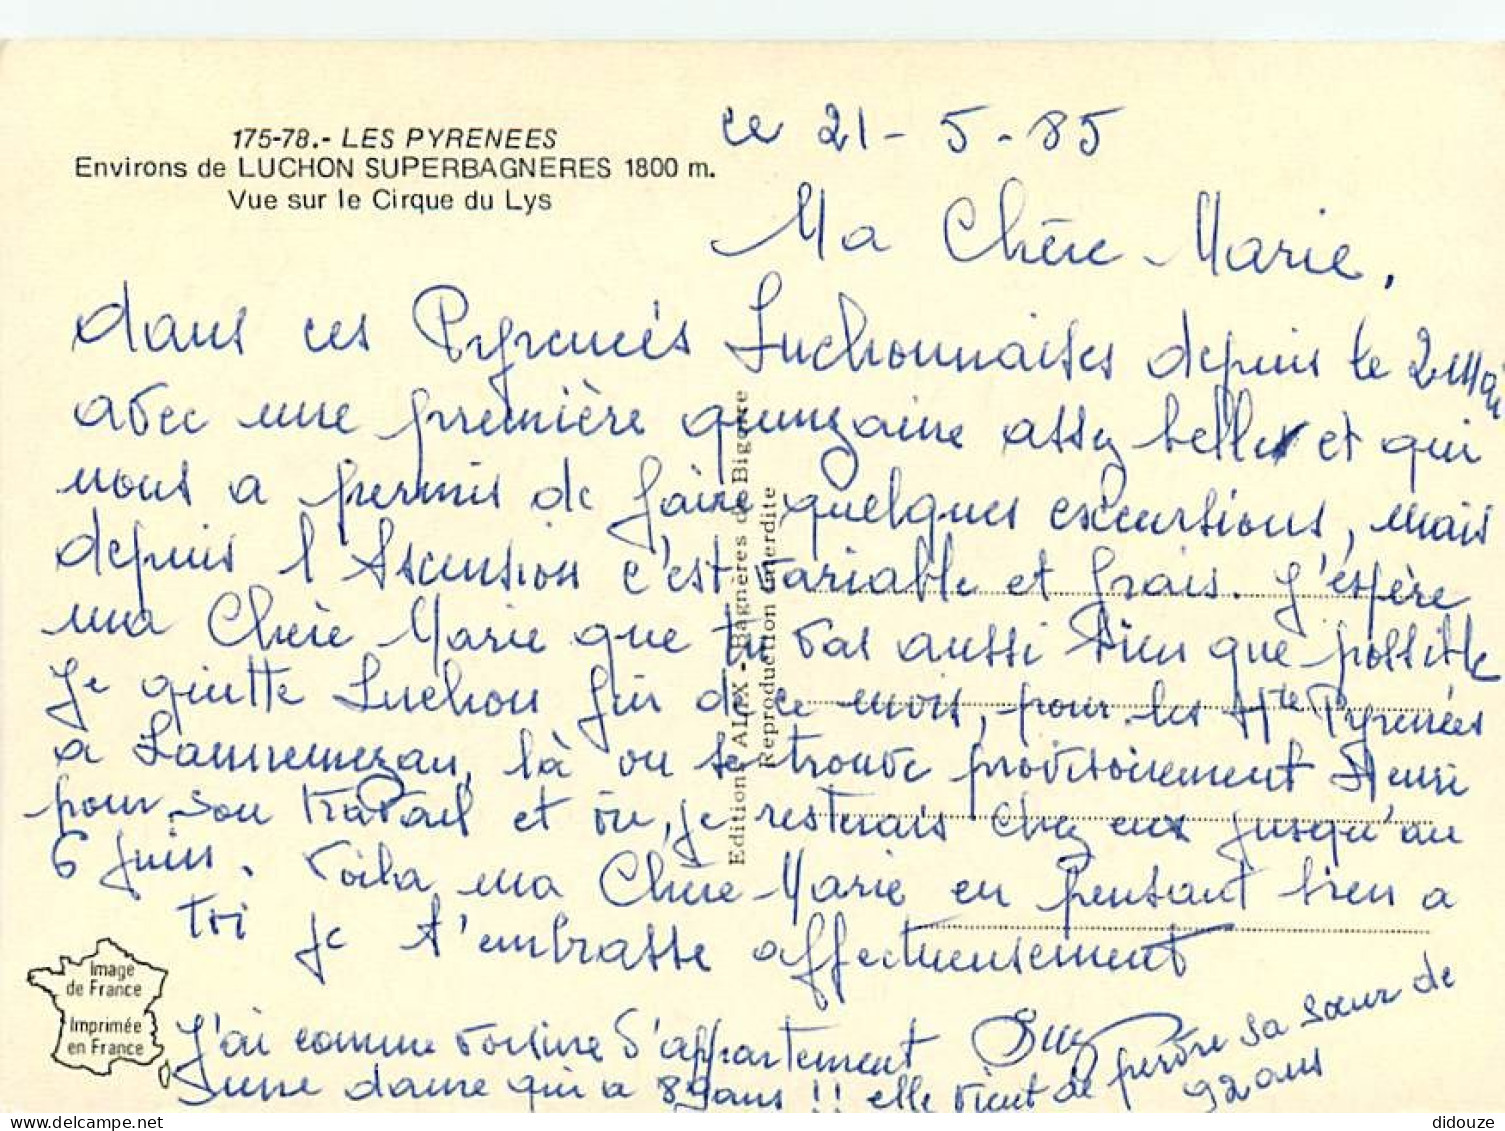 175-78.- LES PYRENEES
Environs de LUCHON SUPERBAGNERES 1800 m.
Vue sur le Cirque du Lys
ce 21-5-85
Ma Chère Marie,
dans ces Pyrenées Luchonnaises depuis le 2 Mai
avec une première quinzaine assez belle et qui
nous a permis de faire quelques excursions, mais
depuis l'Ascension c'est variable et frais. J'espère
ma Chère Marie que tu vas aussi bien que possible
Je quitte Luchon fin de ce mois, pour les Htes Pyrenées
a Lannemezan, là ou se trouve provisoirement Henri
pour son travail et où, je resterais chez eux jusqu'au
6 juin. Voila ma Chère Marie en pensant bien a
toi je t'embrasse affectueusement
J'ai comme voisine d'appartement
d'une dame qui a 89 ans !! elle vient de perdre sa sœur de
92 ans
Editions ALIX - Bagnères de Bigorre
Reproduction interdite
Image
de France
Imprimée
en France
didouze